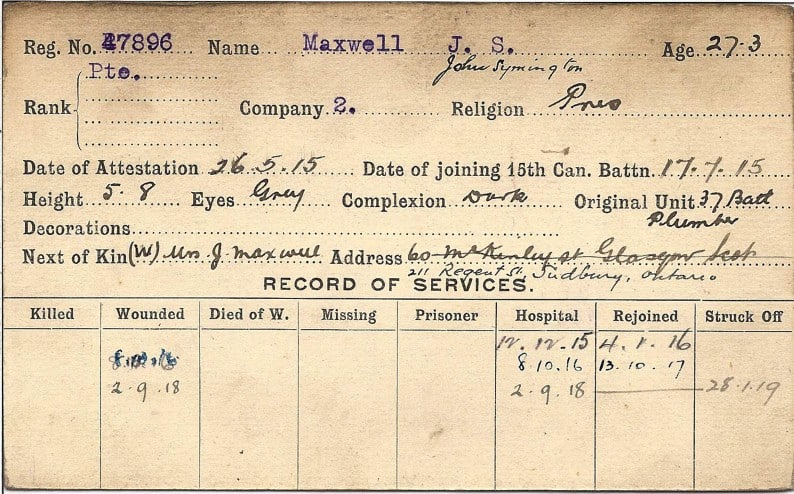 Reg. No. 47896 Name Maxwell J. S. Age 27.3
Pte. John Symington
Rank Company 2. Religion Pres
Date of Attestation 26.5.15 Date of joining 15th Can. Battn. 17.7.15
Height 5.8 Eyes Grey Complexion Dark Original Unit 37 Batt
Decorations Plumber
Next of Kin (W) Mrs J. Maxwell Address 60 McKinley st Glasgow Scot
211 Regent St. Sudbury, Ontario
RECORD OF SERVICES.
Killed Wounded Died of W. Missing Prisoner Hospital Rejoined Struck Off
12.12.15 4.1.16
8.10.16 8.10.16 13.10.17
2.9.18 2.9.18 28.1.19